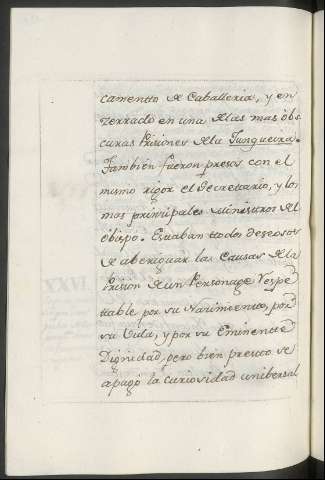 camentto de Caballeria, y en
zerrado en una de las mas obs
curas Prisiones de la Junqueira.
Tambien fueron presos con el
mismo rigor el Secretario, y los
mas prinipales Ministros del
obispo. Estaban ttodos deseosos
de aberiguar las Causas de la
Prision de un Personage Respe
ttable por su Nacimiento, por
su Vida, y por su Eminente
Dignidad, pero bien presto se
apagò la curiosidad unibersal